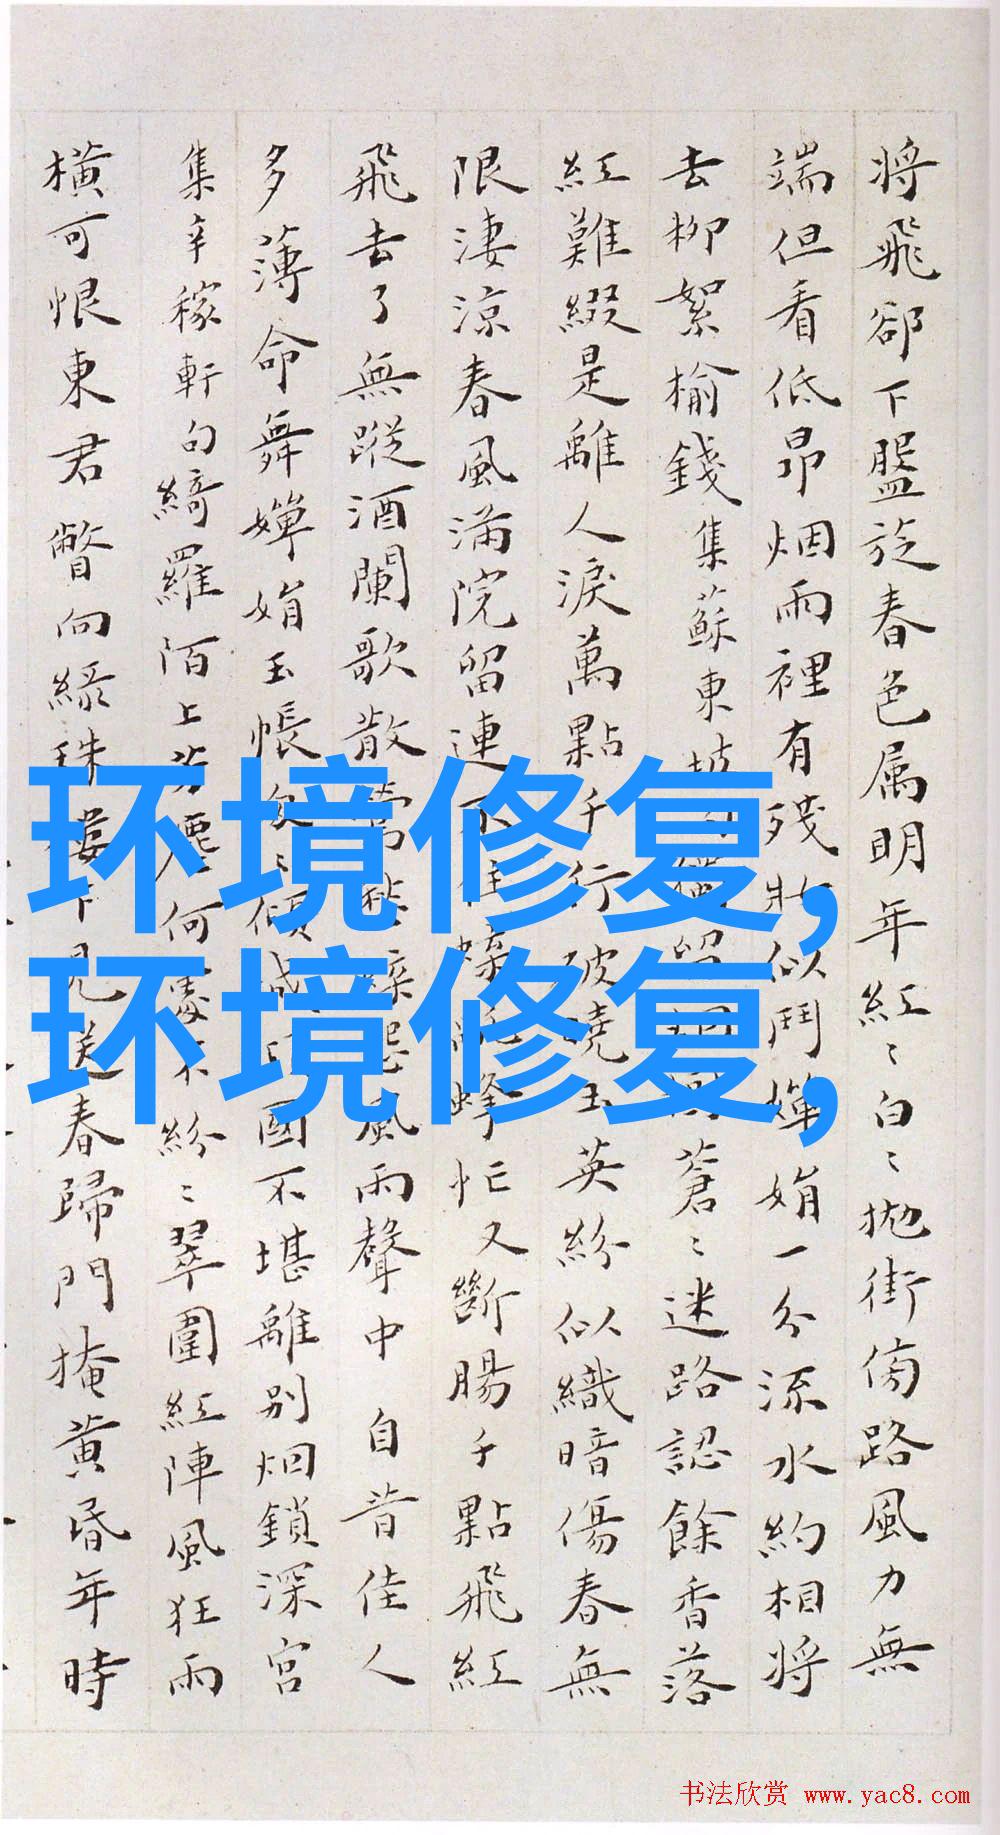 將飛卻下盤旋春色属明年紅〻白〻拋街傍路風力無
端但看低昂烟雨裡有殘妝似鬥嬋娟一分流水約相將
去柳絮榆錢集蘇東坡蒼〻迷路認餘香落
紅難綴是離人淚萬點千行破曉玉英紛似織暗傷春無
限淒涼春風滿院留連不住蜂忙又斷腸千點飛紅
飛去了無蹤酒闌歌散風雨聲中 自昔佳人
多薄命舞嬋娟玉帳國不堪離別烟鎖深宮
集辛稼軒句綺羅陌上芳塵何處不紛〻翠圍紅陣風狂雨
橫可恨東君瞥向綠珠樓下見送春歸門掩黃昏年時
环境修复,
环境修复,
书法欣赏 www.yac8.com